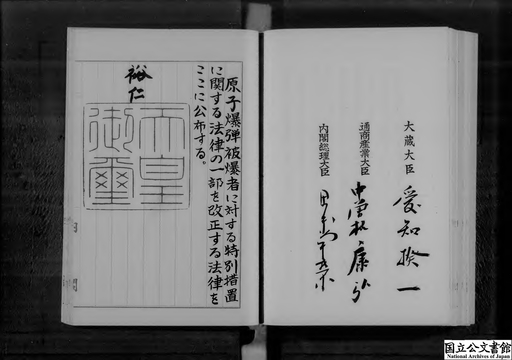 大蔵大臣 愛知揆一
通商産業大臣 中曽根康弘
内閣総理大臣 田中角栄
原子爆弾被爆者に対する特別措置
に関する法律の一部を改正する法律を
ここに公布する。
裕仁
天皇
御璽
国立公文書館
National Archives of Japan